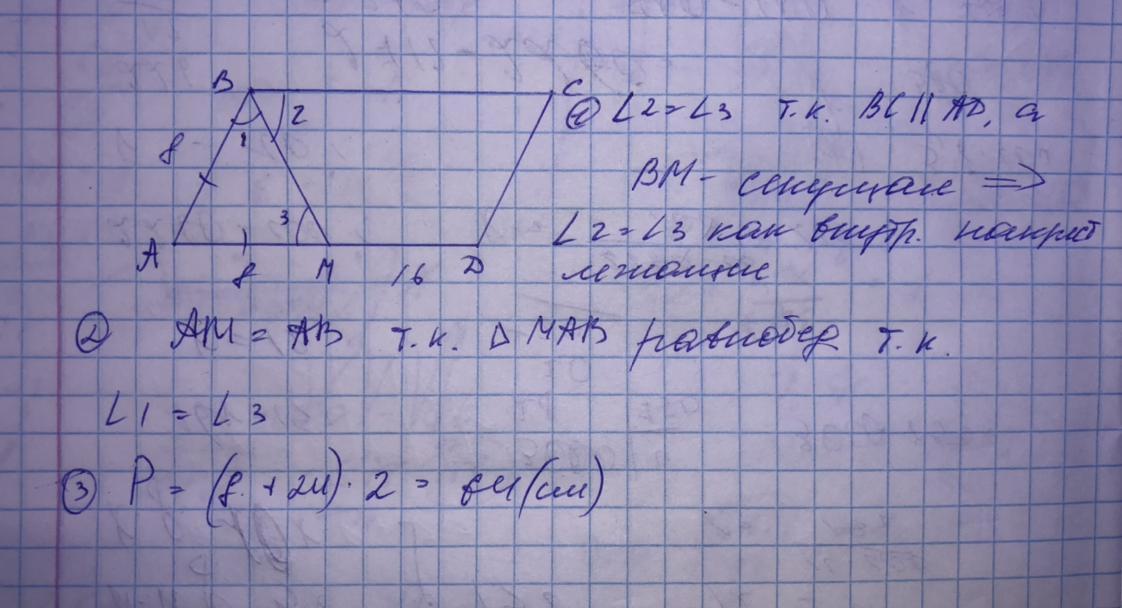 B
C
8
1
2
3
A
8
M
16
D
① ∠2=∠3 т.к. BC || AD, а
BM - секущая ⇒
∠2=∠3 как внутр. накрест
лежащие
② AM = AB т.к. Δ MAB равнобед т.к.
∠1 = ∠3
③ P = (8 + 24) · 2 = 64 (см)